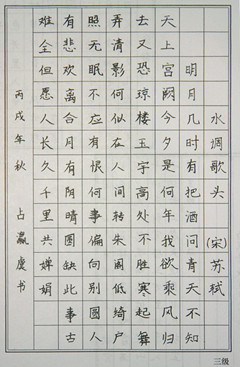 水调歌头 (宋)苏轼
明月几时有把酒问青天不知
天上宫阙今夕是何年我欲乘风归
去又恐琼楼玉宇高处不胜寒起舞
弄清影何似在人间转朱阁低绮户
照无眠不应有恨何事偏向别圆人
有悲欢离合月有阴晴圆缺此事古
难全但愿人长久千里共婵娟
丙戌年秋 占瀛慶书
三级